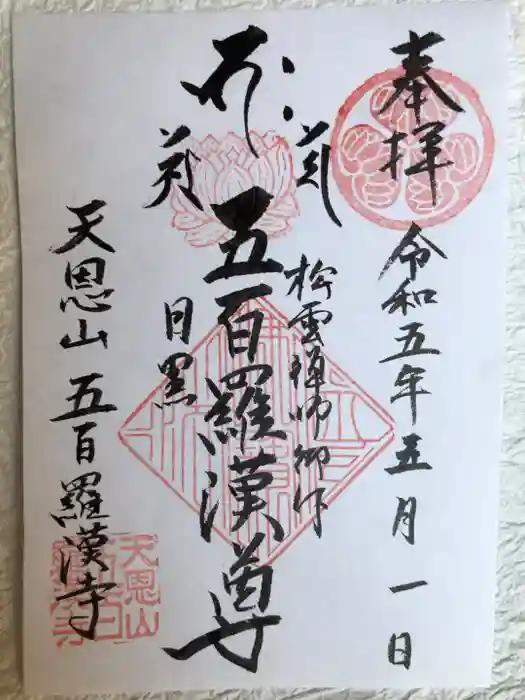 奉拝
令和五年五月一日
松雲禅師御作
五百羅漢尊
目黒
天恩山五百羅漢寺
天恩山
五百
羅漢寺